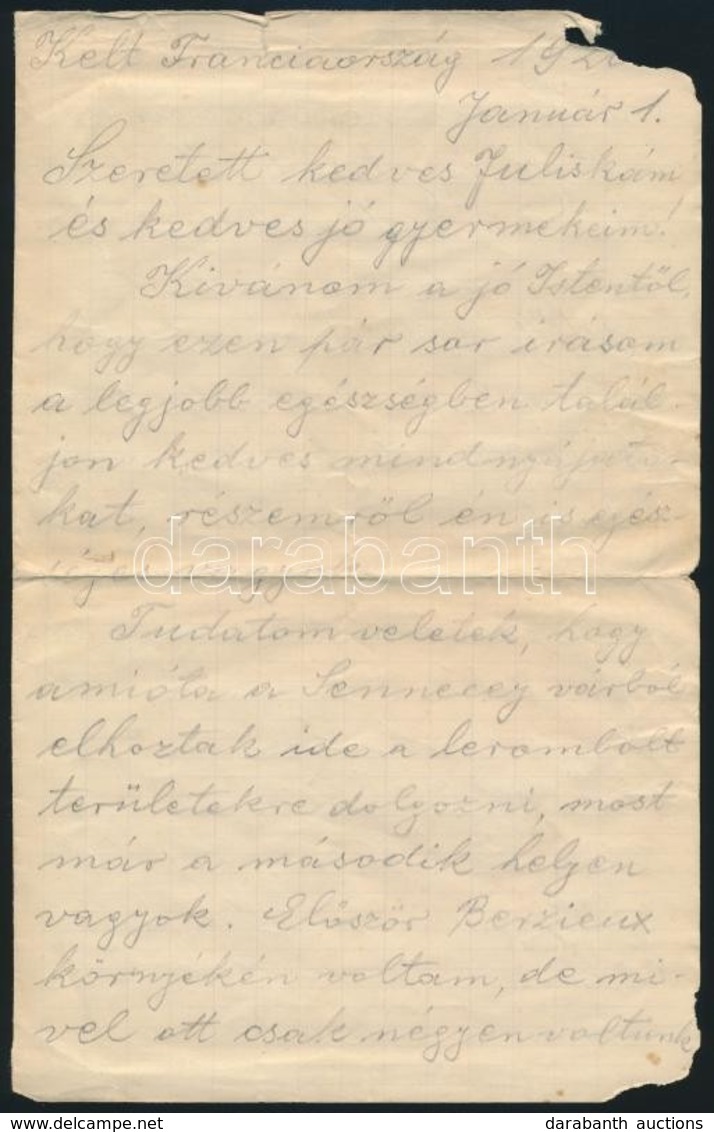 Kelt Franciaország 192
Január 1.
Szeretett kedves Juliskám
és kedves jó gyermekeim!
Kivánom a jó Istentől,
hogy ezen pár sor irásom
a legjobb egészségben talál-
jon kedves mindnyájato-
kat, részemről én is egész-
darabanth
Tudatom veletek, hogy
amióta a Sennecey várból
elhoztak ide a lerombolt
területekre dolgozni, most
már a második helyen
vagyok. Először Berzieux
környékén voltam, de mi-
vel ott csak négyen voltunk
www.darabanth.com
darabanth auctions